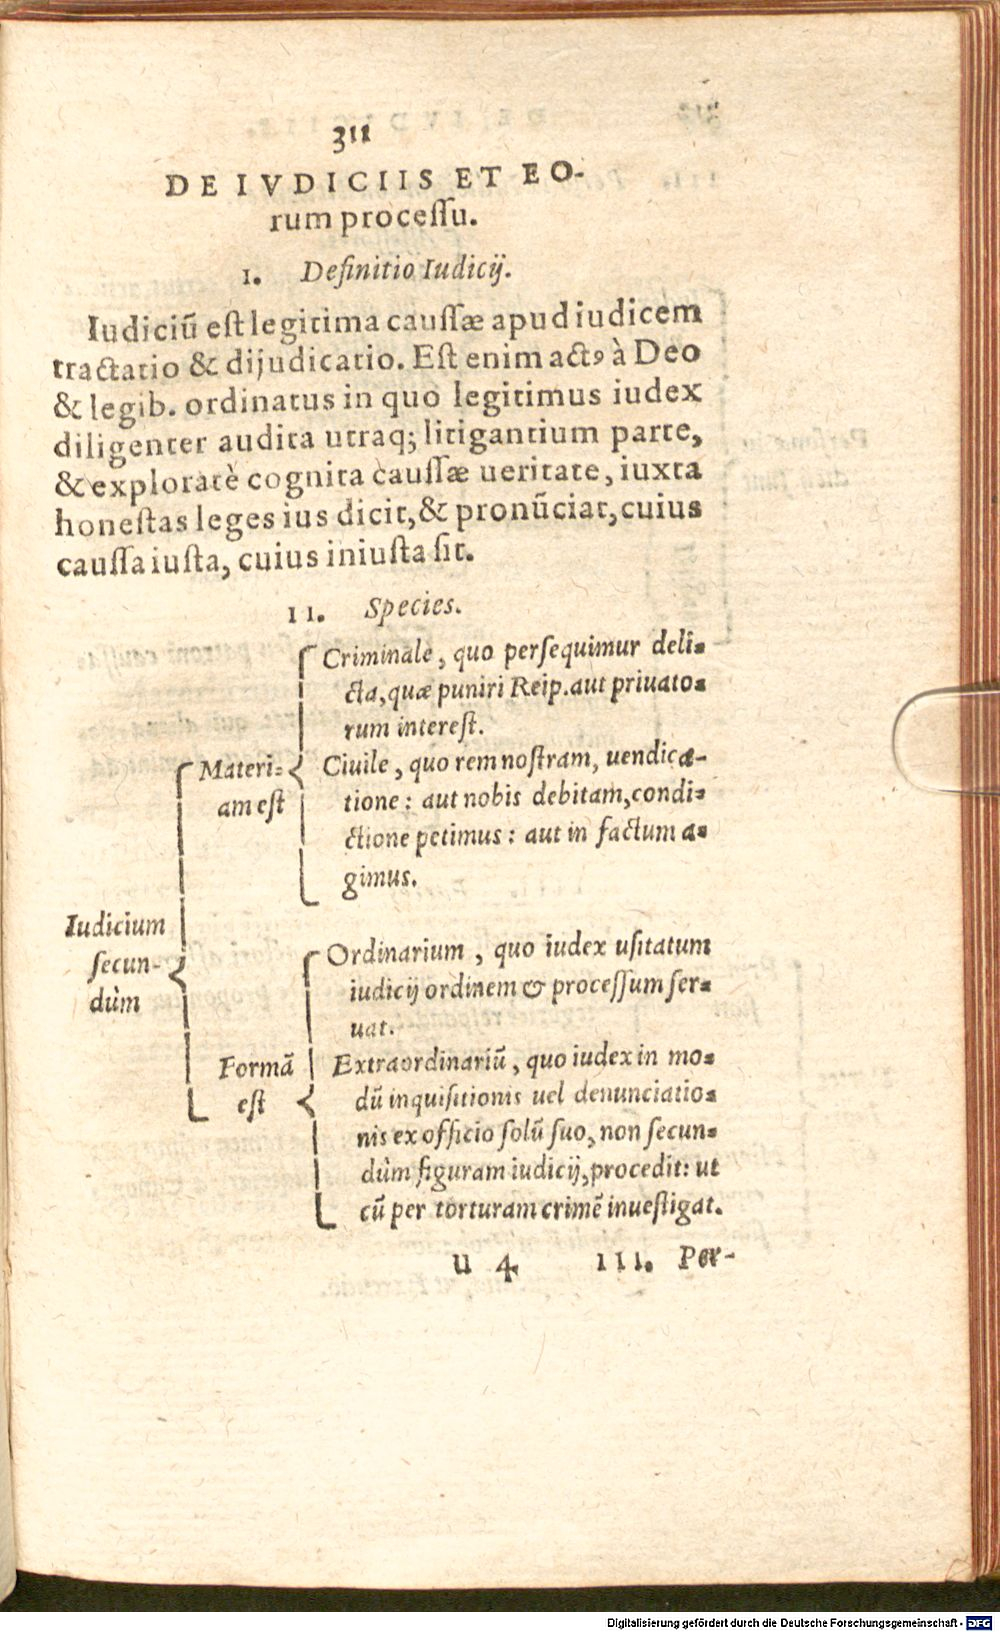 311
DE IVDICIIS ET EO-
rum processu.
I. Definitio Iudicij.
Iudiciū est legitima caussæ apud iudicem
tractatio & dijudicatio. Est enim actꝰ à Deo
& legib. ordinatus in quo legitimus iudex
diligenter audita utraq; litigantium parte,
& exploratè cognita caussæ ueritate, iuxta
honestas leges ius dicit, & pronūciat, cuius
caussa iusta, cuius iniusta sit.
II. Species.
Iudicium
secun-
dùm
Materi-
am est
Criminale, quo persequimur deli-
cta, quæ puniri Reip. aut priuato-
rum interest.
Ciuile, quo rem nostram, uendica-
tione: aut nobis debitam, condi-
ctione petimus: aut in factum a-
gimus.
Formā
est
Ordinarium, quo iudex usitatum
iudicij ordinem & processum ser-
uat.
Extraordinariū, quo iudex in mo-
dū inquisitionis uel denunciatio-
nis ex officio solū suo, non secun-
dùm figuram iudicij, procedit: ut
cū per torturam crimē inuestigat.
u 4 III. Per-
Digitalisierung gefördert durch die Deutsche Forschungsgemeinschaft - DFG